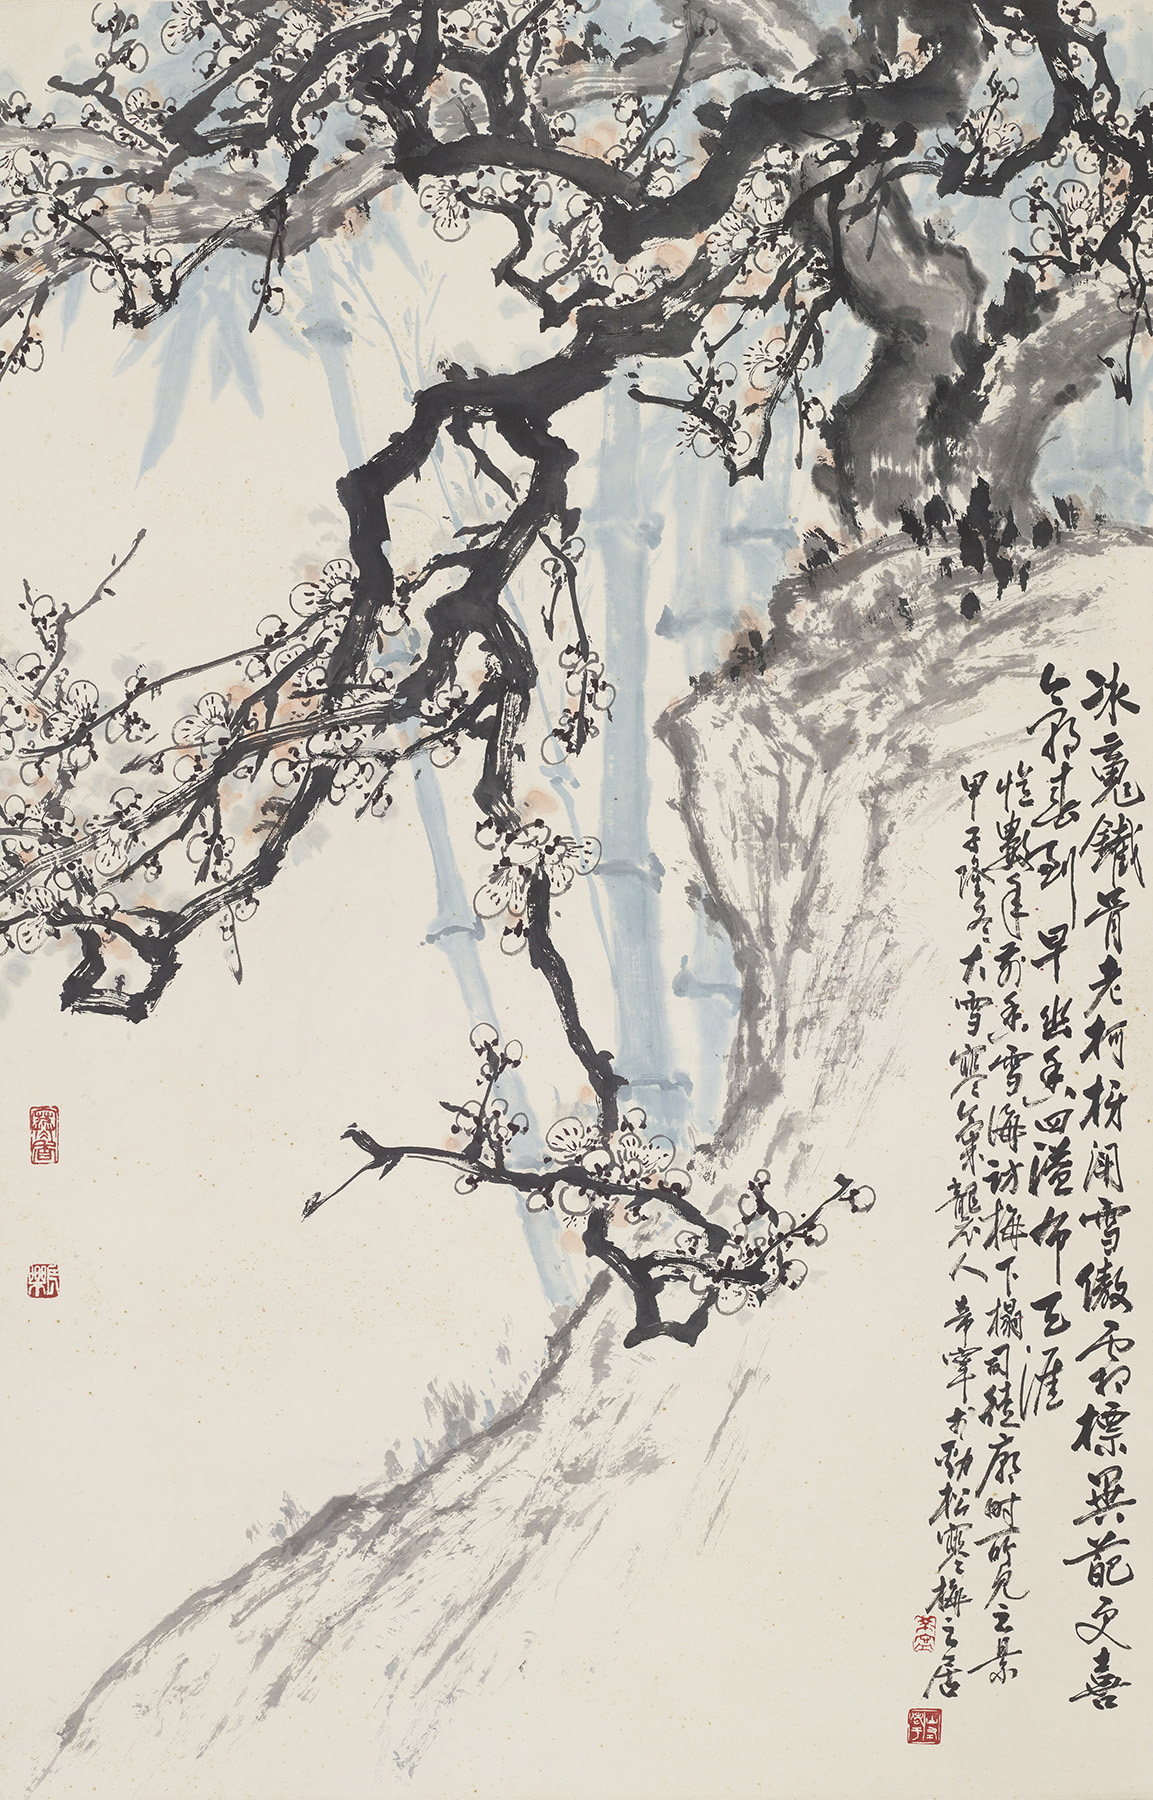 冰魂鐵骨老柯枒鬧雪傲霜標異葩更喜
今朝春到早幽香四溢布天涯
憶數年前香雪海訪梅下榻司徒廟時所見之景
甲子隆冬大雪寒氣襲人希寧於勁松寒梅之居